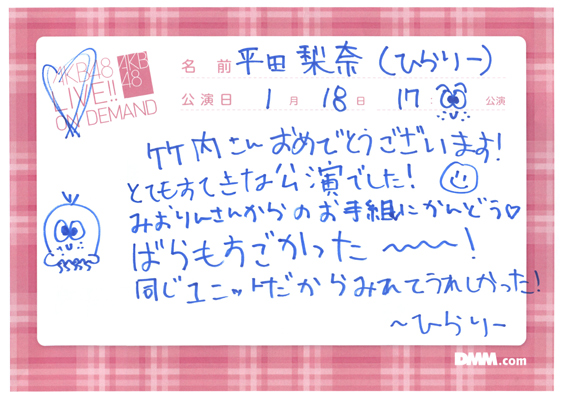 AKB48
LIVE!!
ON DEMAND
AKB
48
名 前 平田 梨奈 (ひらりー)
公演日 1 月 18 日 17 : 公演
竹内さんおめでとうございます!
とてもすてきな公演でした!
みおりんさんからのお手組にかんどう♡
ばらもすごかった〜〜〜!
同じユニットだからみれてうれしかった!
〜ひらりー
DMM.com